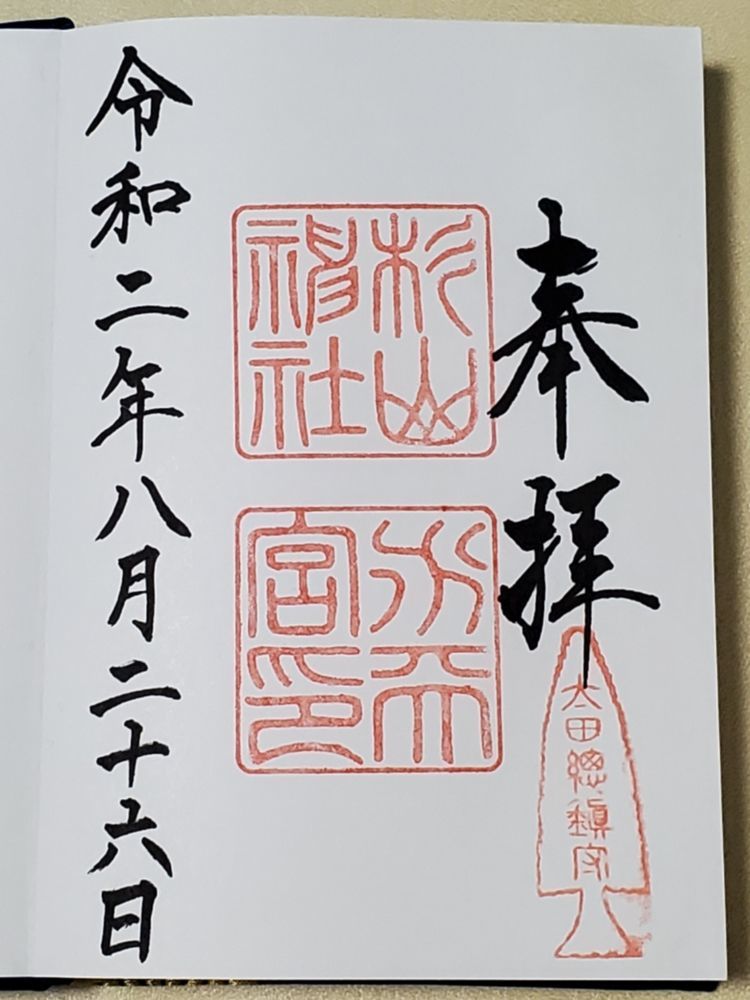 奉拝
太田總鎮守
杉山
神社
水天
宮印
令和二年八月二十六日